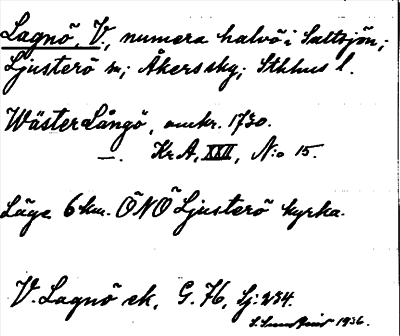 Lagnö, V., numera halvö i Saltsjön;
Ljusterö sn; Åkers sky; Sthlms l.
Wäster Långö, omkr. 1730.
—. Kr A, XXII, N:o 15.
Läge 6 km. ÖNÖ Ljusterö kyrka.
V. Lagnö ek, G. 76, Lj: 234.
1936.